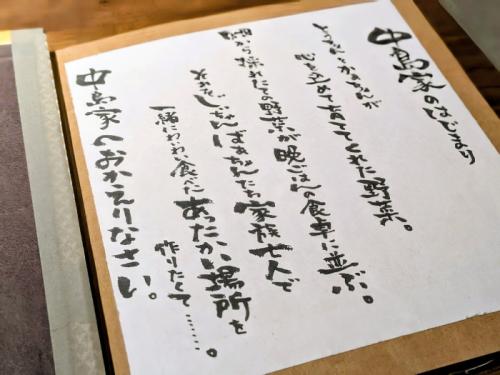 中島家のはじまり
とうちゃんとかあちゃんが
心を込めてつくってくれた野菜。
畑から採れたての野菜が晩ごはんの食卓に並ぶ。
それをじいちゃんばあちゃんたち家族七人で
一緒にわいわい食べたあったかい場所を
作りたくて……。
中島家へおかえりなさい。